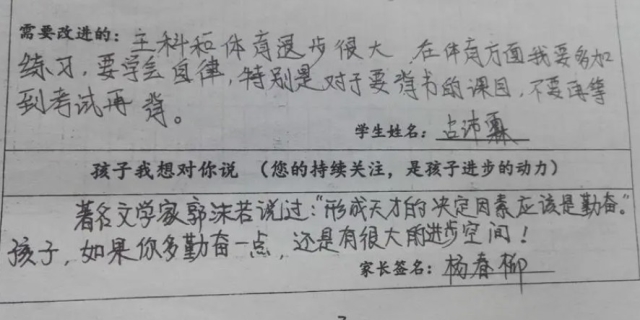 需要改进的：主科和体育退步很大 在体育方面我要多加
练习，要学会自律，特别是对于要背书的课目，不要再等
到考试再背。
学生姓名：占沛霖
孩子我想对你说（您的持续关注，是孩子进步的动力）
著名文学家郭沫若说过："形成天才的决定因素应该是勤奋。"
孩子，如果你多勤奋一点，还是有很大的进步空间！
家长签名：杨春柳